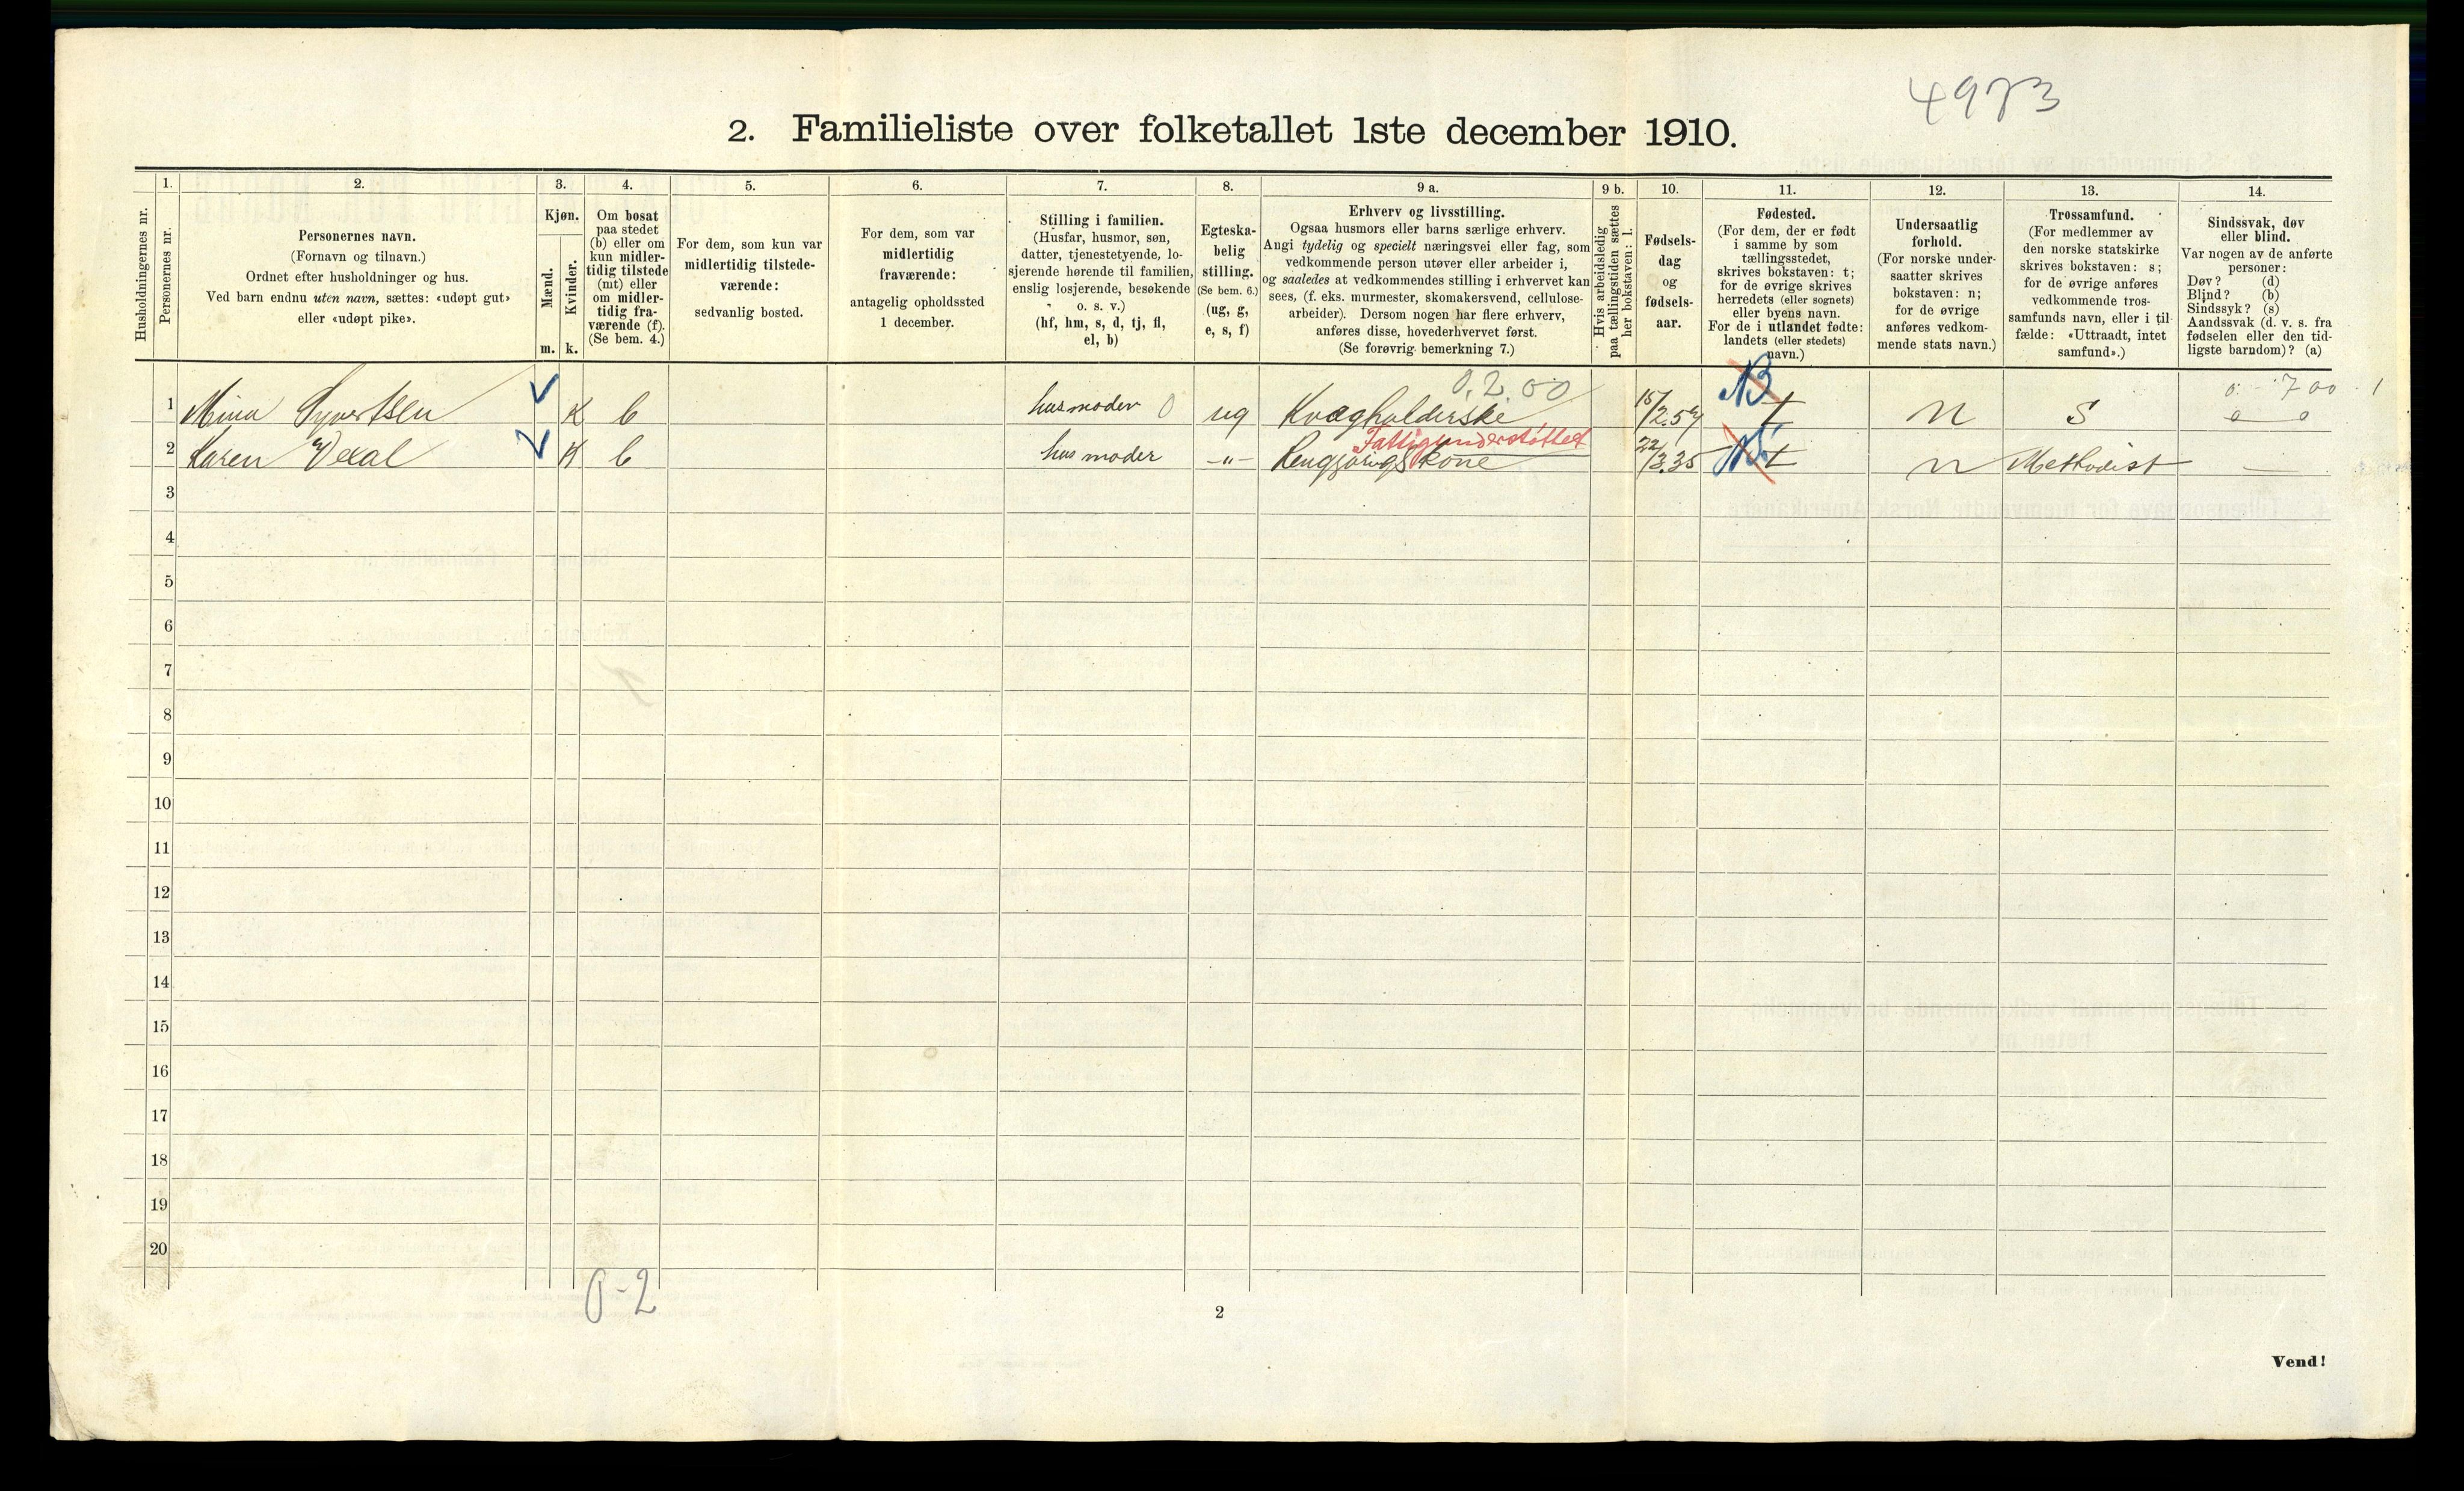 4973
2. Familieliste over folketallet 1ste december 1910.
Husholdningernes nr.
1.
Personernes nr.
2.
Personernes navn.
(Fornavn og tilnavn.)
Ordnet efter husholdninger og hus.
Ved barn endnu uten navn, sættes: «udøpt gut»
eller «udøpt pike».
3.
Kjøn.
Mænd.
Kvinder.
m. k.
4.
Om bosat
paa stedet
(b) eller om
kun midler-
tidig tilstede
(mt) eller
om midler-
tidig fra-
værende (f).
(Se bem. 4.)
5.
For dem, som kun var
midlertidig tilstede-
værende:
sedvanlig bosted.
6.
For dem, som var
midlertidig
fraværende:
antagelig opholdssted
1 december.
7.
Stilling i familien.
(Husfar, husmor, søn,
datter, tjenestetyende, lo-
sjerende hørende til familien,
enslig losjerende, besøkende
o. s. v.)
(hf, hm, s, d, tj, fl,
el, b)
8.
Egteska-
belig
stilling.
(Se bem. 6.)
(ug, g,
e, s, f)
9 a.
Erhverv og livsstilling.
Ogsaa husmors eller barns særlige erhverv.
Angi tydelig og specielt næringsvei eller fag, som
vedkommende person utøver eller arbeider i,
og saaledes at vedkommendes stilling i erhvervet kan
sees, (f. eks. murmester, skomakersvend, cellulose-
arbeider). Dersom nogen har flere erhverv,
anføres disse, hovederhvervet først.
(Se forøvrig bemerkning 7.)
9 b.
Hvis arbeidsledig
paa tællingstiden sættes
her bokstaven: l.
10.
Fødsels-
dag
og
fødsels-
aar.
11.
Fødested.
(For dem, der er født
i samme by som
tællingsstedet,
skrives bokstaven: t;
for de øvrige skrives
herredets (eller sognets)
eller byens navn.
For de i utlandet fødte:
landets (eller stedets)
navn.)
12.
Undersaatlig
forhold.
(For norske under-
saatter skrives
bokstaven: n;
for de øvrige
anføres vedkom-
mende stats navn.)
13.
Trossamfund.
(For medlemmer av
den norske statskirke
skrives bokstaven: s;
for de øvrige anføres
vedkommende tros-
samfunds navn, eller i til-
fælde: «Uttraadt, intet
samfund».)
14.
Sindssvak, døv
eller blind.
Var nogen av de anførte
personer:
Døv? (d)
Blind? (b)
Sindssyk? (s)
Aandssvak (d. v. s. fra
fødselen eller den tid-
ligste barndom)? (a)
0.2.00
0 700 1
1 Mina Syvertsen K b husmoder 0 ug Kvægholderske 15/2.57 t n S
Fattigunderstøttet
2 Karen Vexal K b husmoder -"- Rengjøringskone 22/3.35 t n Methodist —
3
4
5
6
7
8
9
10
11
12
13
14
15
16
17
18
19
20
0-2
2
Vend!